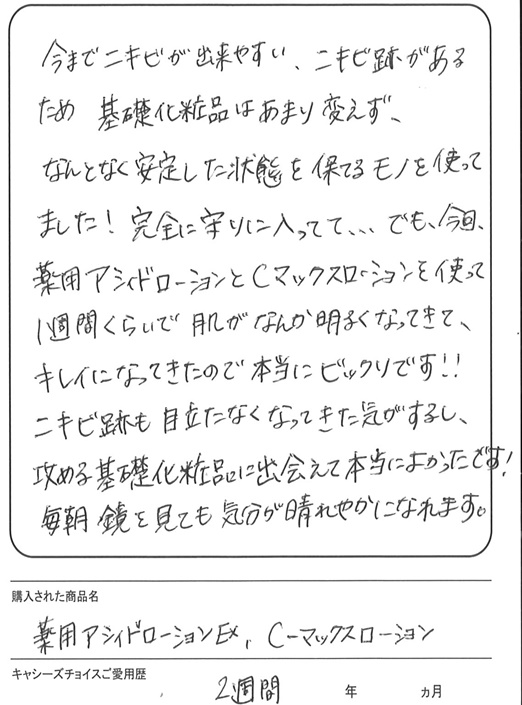 今までニキビが出来やすい、ニキビ跡がある
ため 基礎化粧品はあまり変えず、
なんとなく安定した状態を保てるモノを使って
ました！完全に守りに入ってて、、、でも、今回、
薬用アシィドローションとCマックスローションを使って
1週間くらいで肌がなんか明るくなってきて、
キレイになってきたので本当にビックリです！！
ニキビ跡も目立たなくなってきた気がするし、
攻める基礎化粧品に出会えて本当によかったです！
毎朝鏡を見ても気分が晴れやかになれます。
購入された商品名
薬用アシィドローションEX、C-マックスローション
キャシーズチョイスご愛用歴
2週間 年 ヵ月